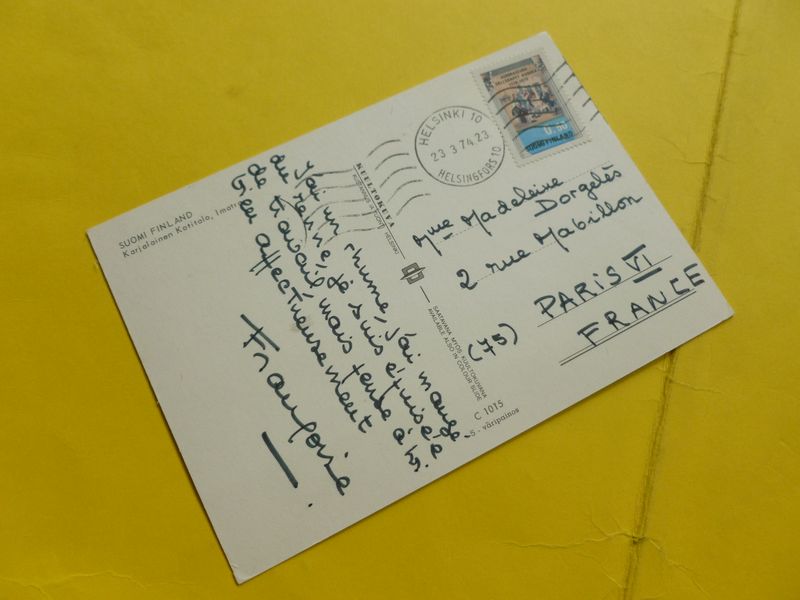 SUOMI FINLAND
Karjalainen Kotitalo, Imatra
J'ai un rhume, j'ai mangé
du renne, je suis épuisée
de travail, mais pense à
Ten affectueusement
Françoise
KUULTOKUVA
HELSINKI
SAATAVANA MYÖS KUULTOKUVANA
AVAILABLE ALSO IN COLOUR SLIDE
C 1015
5 - väripainos
HELSINKI 10
23 3 74.23
HELSINGFORS 10
0,60
SUOMI FINLAND
Mme Madeleine
Dorgelès
2 rue Mabillon
PARIS VI
(75) FRANCE